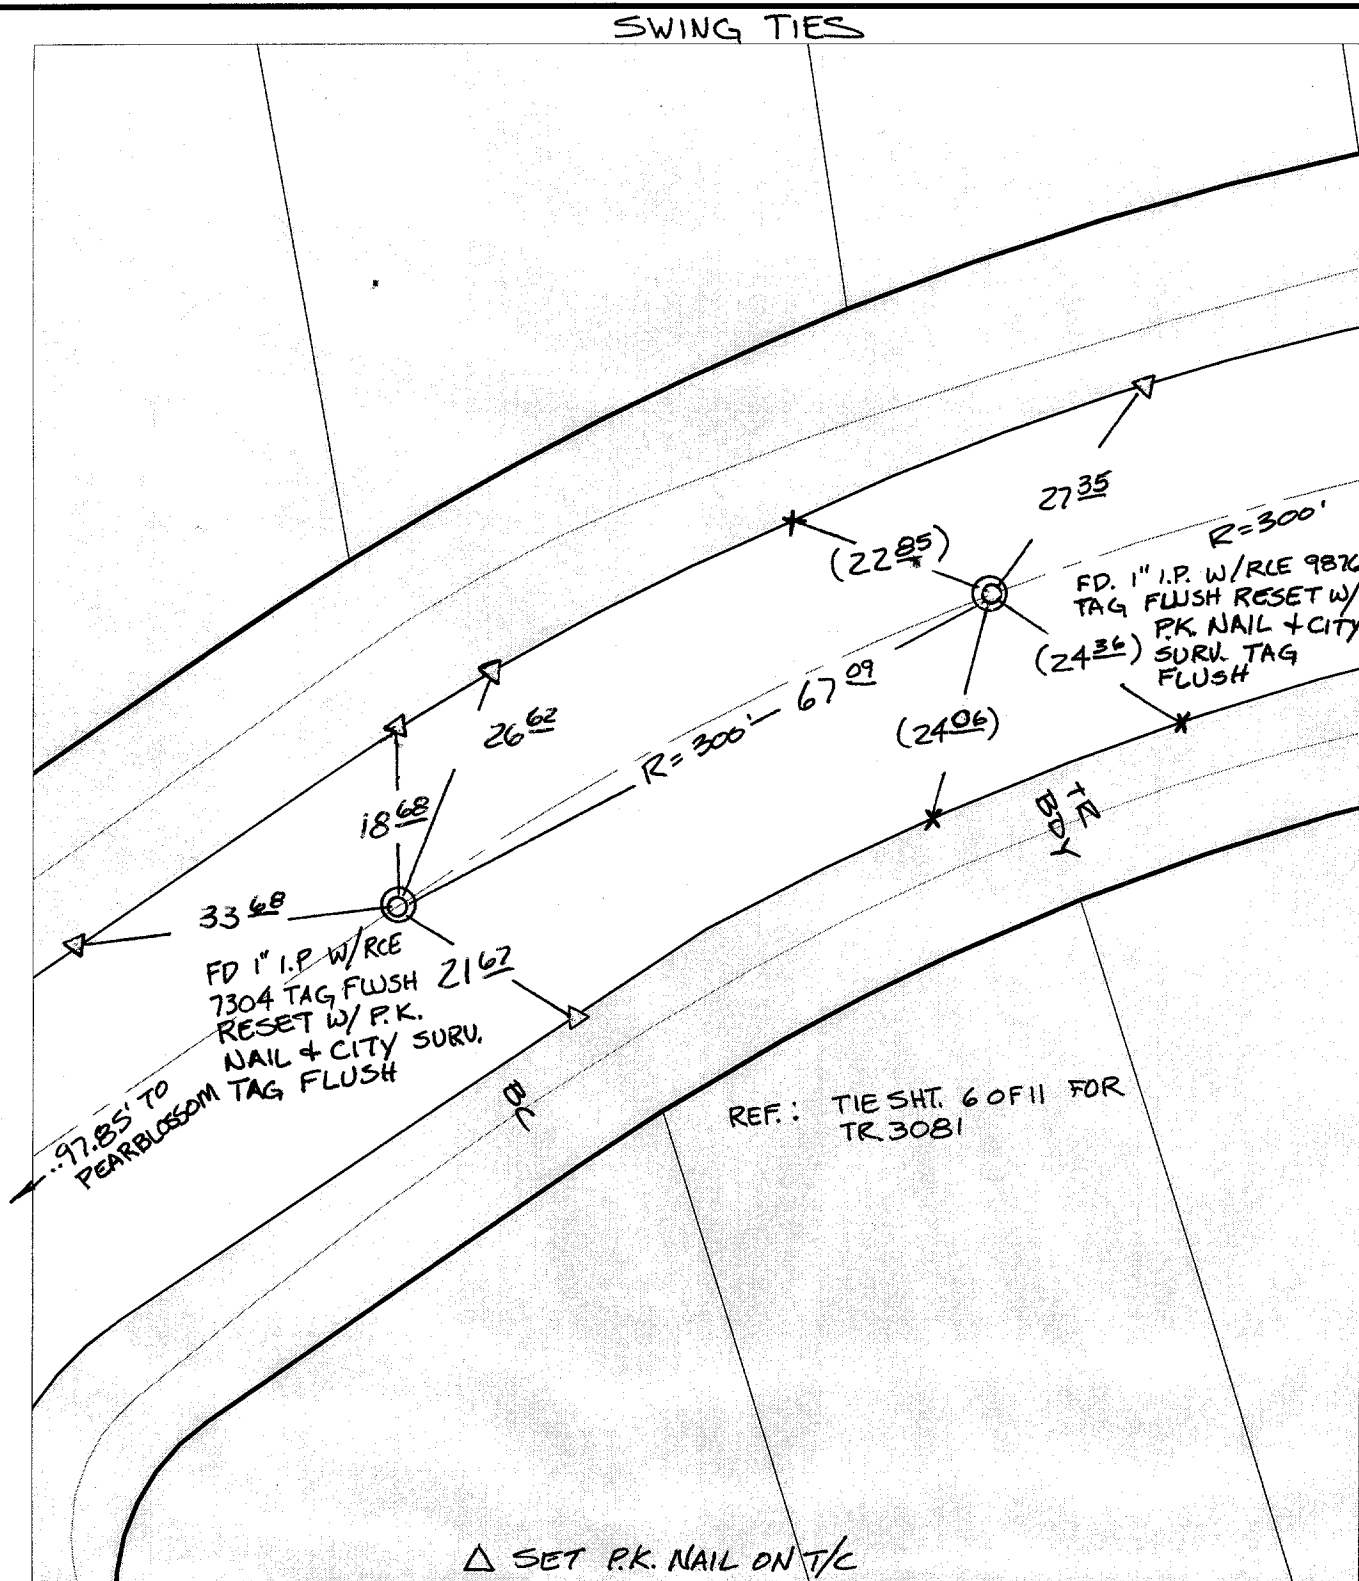 SWING TIES
27 35
(22 85)
R=300'
FD. 1" I.P. W/RCE 9876
TAG FLUSH RESET W/
P.K. NAIL + CITY
SURV. TAG
FLUSH
(24 36)
67 09
(24 06)
R=300'
26 62
18 68
TR
BDY
33 68
FD 1" I.P. W/RCE
7304 TAG FLUSH
RESET W/ P.K.
NAIL + CITY SURV.
TAG FLUSH
21 67
BC
97.85' TO
PEARBLOSSOM
REF.: TIE SHT. 6 OF 11 FOR
TR. 3081
△ SET P.K. NAIL ON T/C